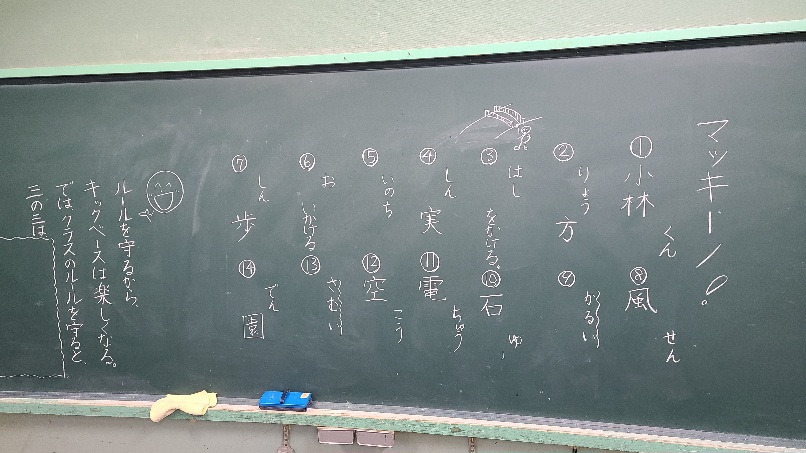 マッキーノ!
①小林くん
②りょう方
③はしをかける。
④しん実
⑤いのち
⑥おいかける
⑦しん歩
⑧風せん
⑨かるい
⑩石ゆ
⑪電ちゅう
⑫空こう
⑬さむい
⑭でん園
ルールを守るから、
キックベースは楽しくなる。
ではクラスのルールを守ると
三の三は